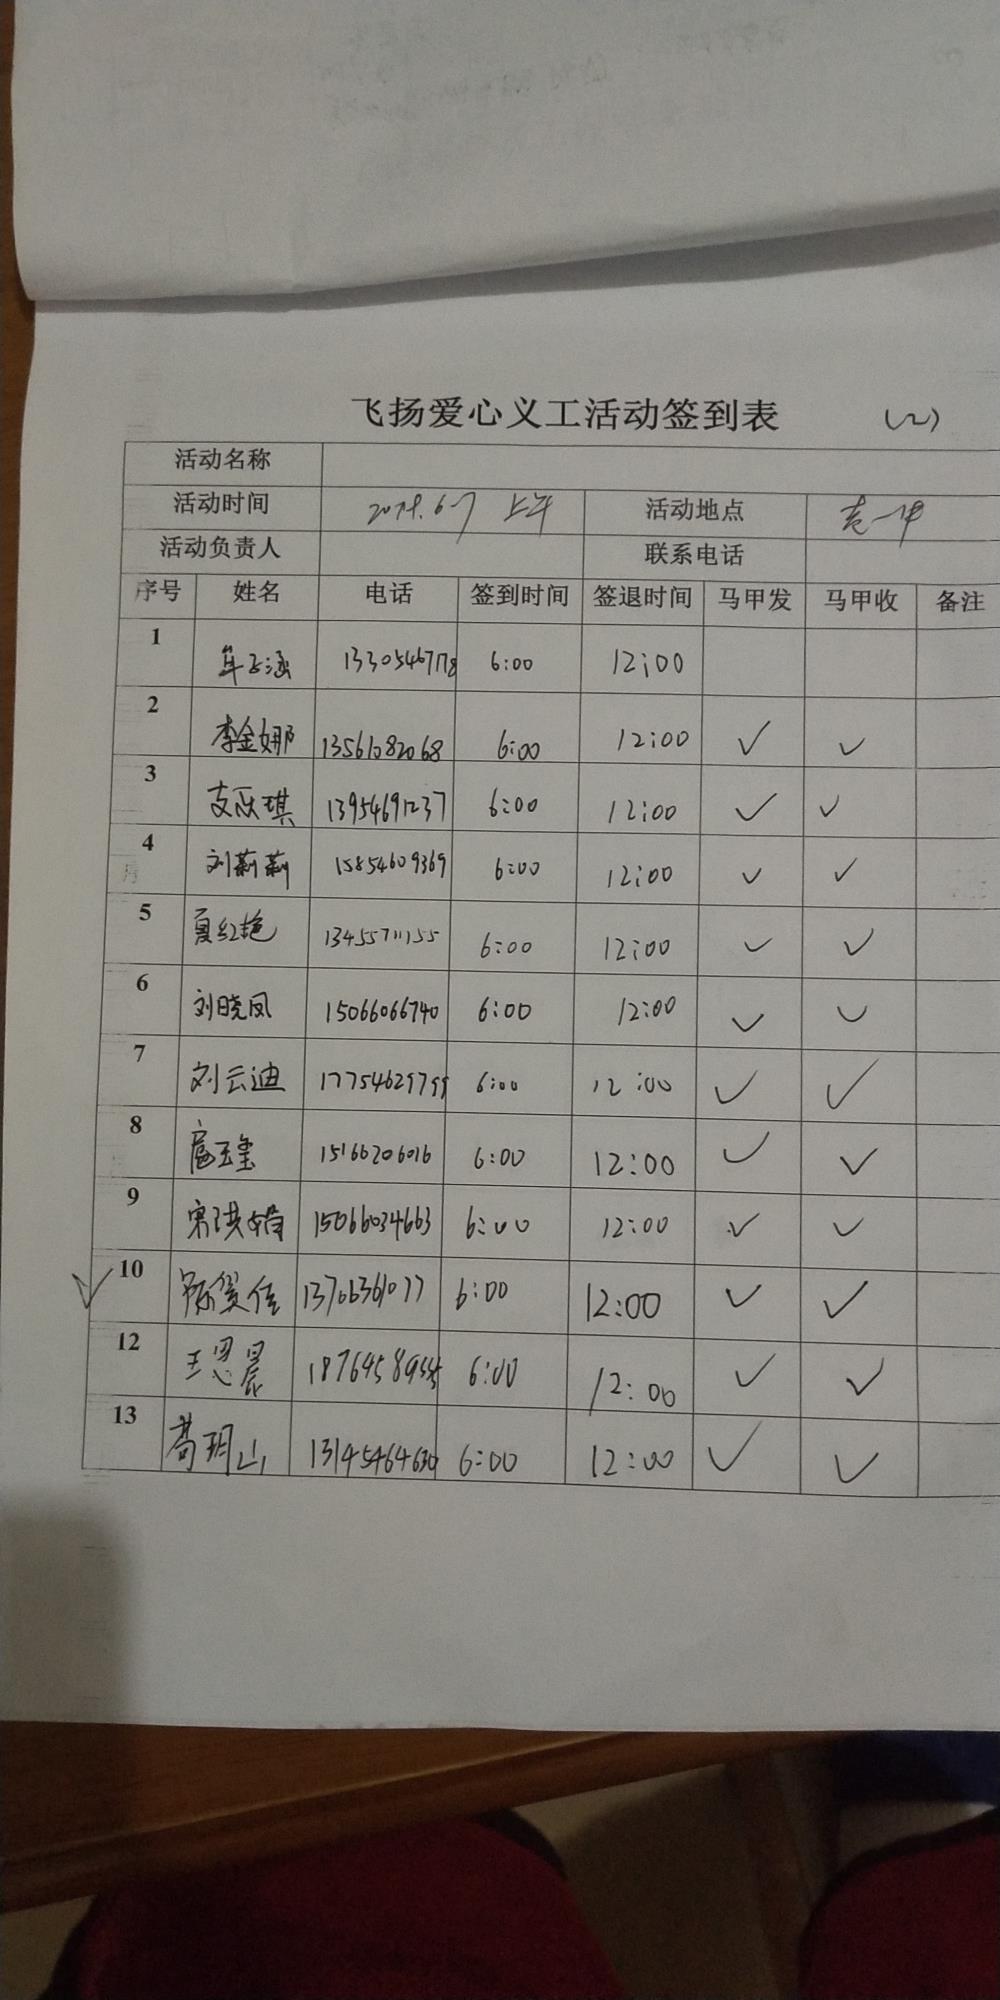 飞扬爱心义工活动签到表 (二)
活动名称
活动时间 上午 活动地点
活动负责人 联系电话
序号 姓名 电话 签到时间 签退时间 马甲发 马甲收 备注
1 13305467178 6:00 12:00
2 李金娜 13561082068 6:00 12:00 ✓ ✓
3 支跃琪 13954691237 6:00 12:00 ✓ ✓
4 刘莉莉 15854609369 6:00 12:00 ✓ ✓
5 夏红艳 13455711155 6:00 12:00 ✓ ✓
6 刘晓凤 15066066740 6:00 12:00 ✓ ✓
7 刘云迪 17754629799 6:00 12:00 ✓ ✓
8 15166206016 6:00 12:00 ✓ ✓
9 15066034663 6:00 12:00 ✓ ✓
✓ 10 13706361077 6:00 12:00 ✓ ✓
12 王恩晨 6:00 12:00 ✓ ✓
13 13145464630 6:00 12:00 ✓ ✓